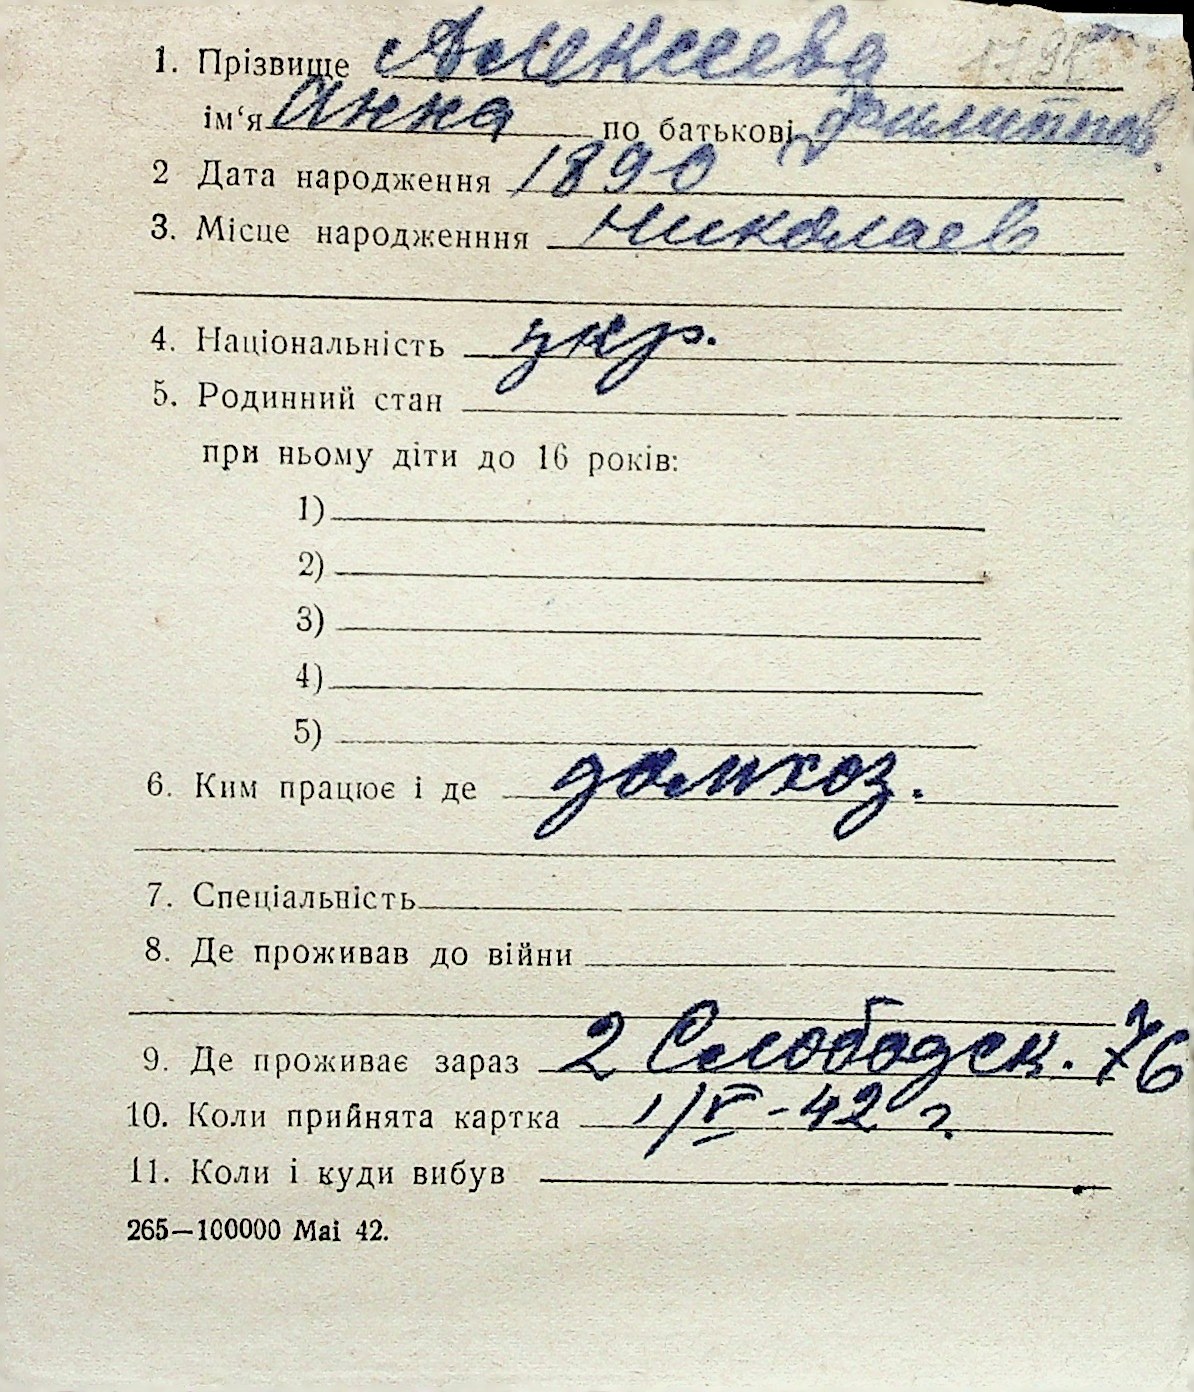 1. Прізвище Алексеева
ім‘я Анна по батькові Филиппов.
2 Дата народження 1890
3. Місце народженння Николаев
4. Національність укр.
5. Родинний стан
при ньому діти до 16 років:
1)
2)
3)
4)
5)
6. Ким працює і де домхоз.
7. Спеціальність
8. Де проживав до війни
9. Де проживає зараз 2 Слободск. 76
10. Коли прийнята картка 1/V-42 г.
11. Коли і куди вибув
265—100000 Mai 42.